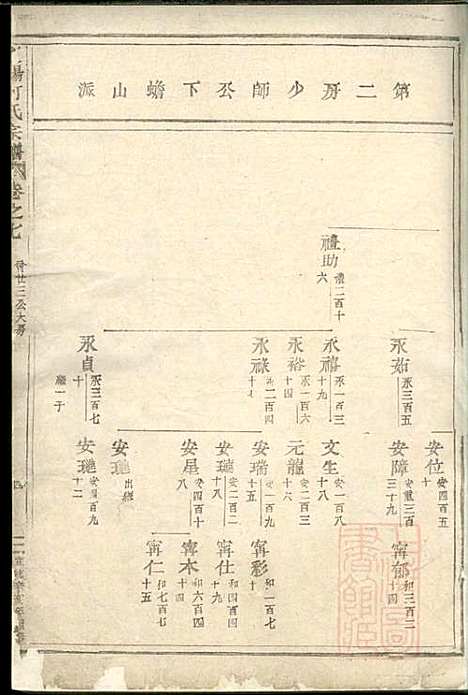 第二房少師公下蟾山派
禮助
六
永茹
永三百五
十九
永禧
永一百三
十九
永裕
永一百六
十四
永祿
永二百四
永貞
永三百七
十
嗣一子
安位
安四百五
十
安障
三十九
文生
安一百八
十八
元龍
安二百三
十六
安瑞
安一百九
十五
安璉
安二百二
十八
安星
安四百十
八
安璉
出繼
安璉
安四百九
十二
甯郁
和三百二
十四
甯彩
和一百七
甯仕
和四百四
十四
甯木
和六百四
十四
甯仁
和七百四
十五
氏宗譜
卷之七
廿三公大房
四